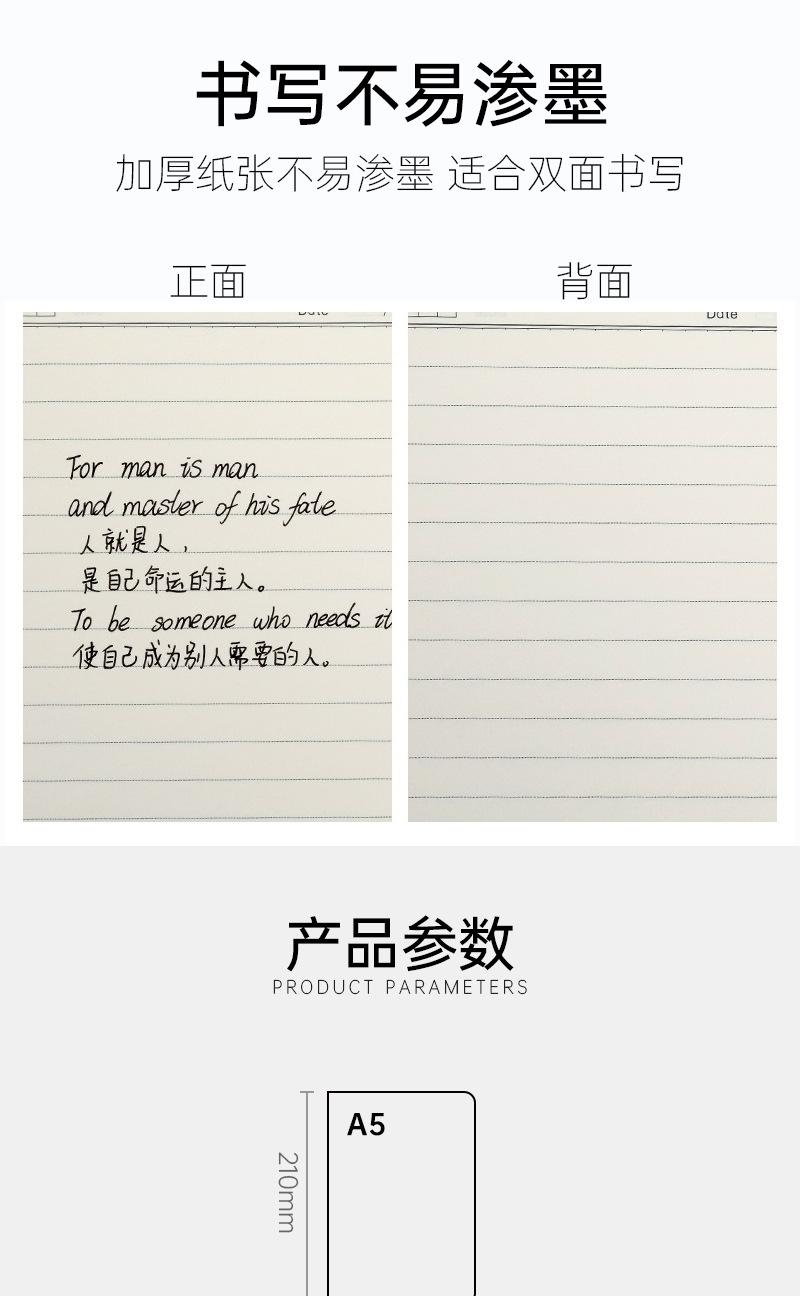 书写不易渗墨
加厚纸张不易渗墨 适合双面书写
正面
背面
Date
Date
For man is man
and master of his fate
人就是人，
是自己命运的主人。
To be someone who needs it
使自己成为别人需要的人。
产品参数
PRODUCT PARAMETERS
A5
210mm